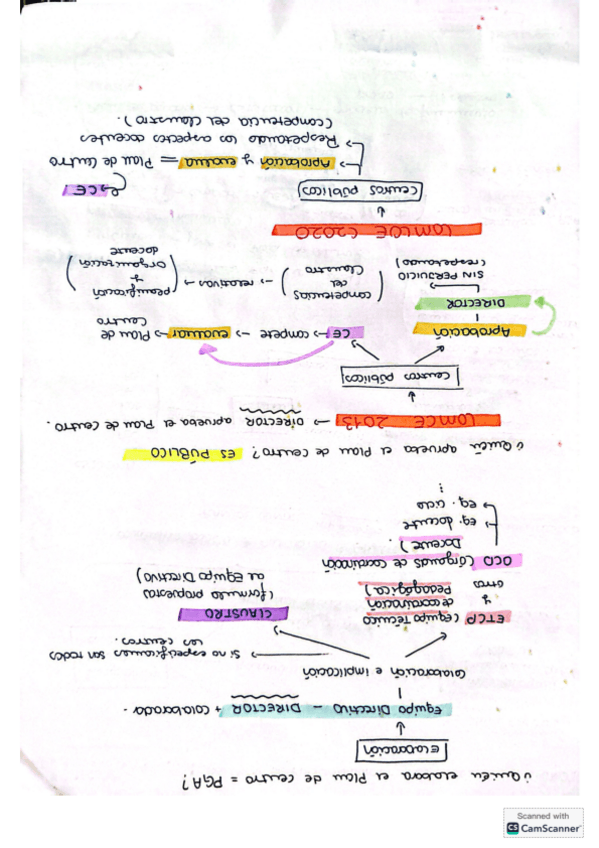 ¿Quién elabora el Plan de centro = PGA?
elaboración
Equipo Directivo – DIRECTOR + colaborador.
Colaboración e implicación
Si no especificamos son todos
los centros.
ETCP (equipo Técnico
de coordinación
Pedagógica)
y
otros
OCD (Órganos de coordinación
Docente).
eq. docente
eq. ciclo
⋮
CLAUSTRO
(formula propuesta
al Equipo Directivo)
¿Quién aprueba el Plan de centro? ES PÚBLICO
LOMCE 2013 → DIRECTOR aprueba el Plan de centro.
Centros públicos
Aprobación
DIRECTOR
SIN PERJUICIO
(respetando)
CE → compete → evaluar → Plan de
Centro
(competencias
del
Claustro) → relativas → (planificación
y
organización
docente)
LOMLOE (2020)
Centros públicos
CE
Aprobación y evalua = Plan de Centro
Respetando los aspectos docentes
(competencia del Claustro).
Scanned with
CS CamScanner